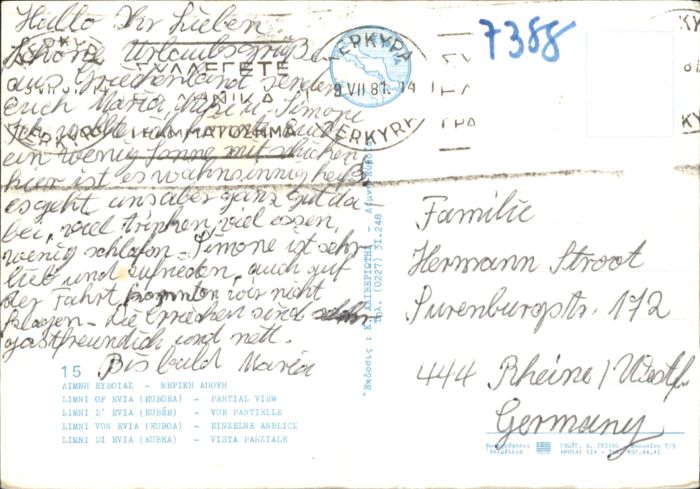 Hallo Ihr Lieben
Schöne Urlaubsgrüße
aus Griechenland senden
euch Maria, u. Simone
ein wenig Sonne mitschicken
hier ist es wahnsinnig heiß
es geht uns aber ganz gut da-
bei, viel trinken, viel essen,
wenig schlafen. Simone ist sehr
lieb und zufrieden, auch auf
der Fahrt konnten wir nicht
klagen. Die Griechen sind sehr
gastfreundlich und nett.
Bis bald Maria
ΚΕΡΚΥΡΑ
9 VII 81. 14
ΚΕΡΚΥΡΑ
ΣΥΛΛΕΓΕΤΕ
ΓΡΑΜΜΑΤΟΣΗΜΑ
7388
Familie
Hermann Stroot
Surenburgstr. 172
444 Rheine/Westf.
Germany
15
ΛΙΜΝΗ ΕΥΒΟΙΑΣ - ΜΕΡΙΚΗ ΑΠΟΨΗ
LIMNI OF EVIA (EUBOEA) - PARTIAL VIEW
LIMNI D' EVIA (EUBÉE) - VUE PARTIELLE
LIMNI VON EVIA (EUBOA) - EINZELNE ANBLICK
LIMNI DI EVIA (EUBEA) - VISTA PARZIALE
Τηλ. (0227) 31.248